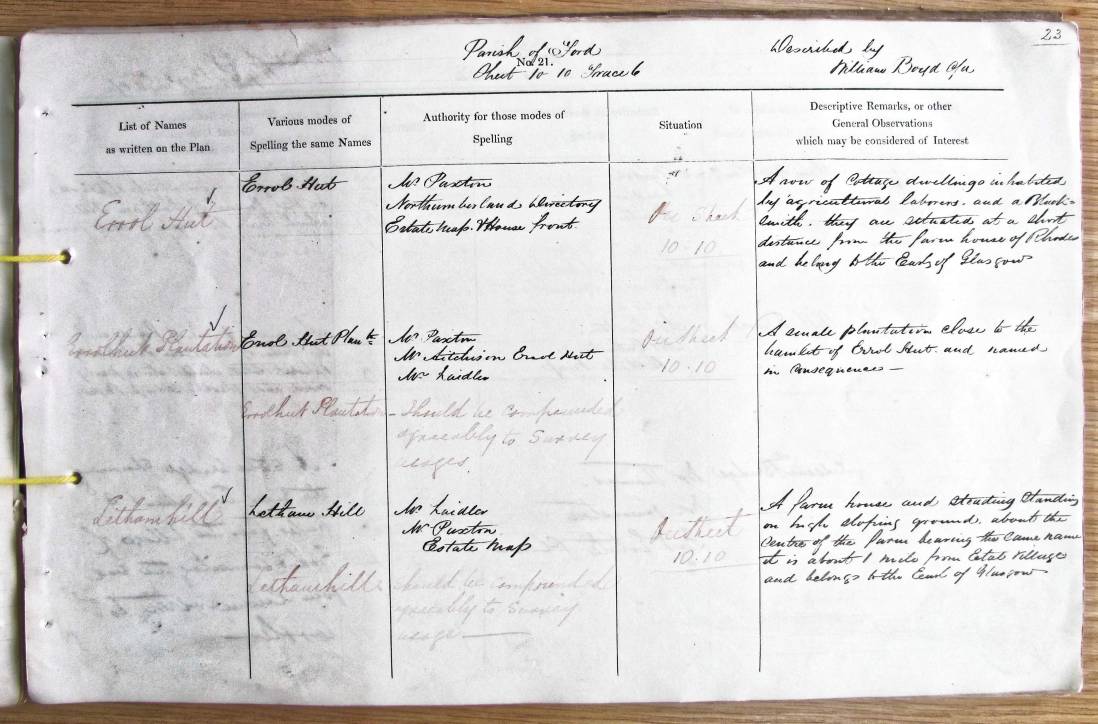 23
Parish of Ford
No. 21.
Sheet 10 10 Trace 6
Described by
William Boyd c/a
List of Names
as written on the Plan
Various modes of
Spelling the same Names
Authority for those modes of
Spelling
Situation
Descriptive Remarks, or other
General Observations
which may be considered of Interest
Errol Hut
Errol Hut
Mr Paxton
Northumberland Directory
Estate Map. & House front.
On Sheet
10.10
A row of Cottage dwellings inhabited
by agricultural laborers. and a Black-
smith. they are situated at a short
distance from the farm house of Rhodes
and belong to the Earl of Glasgow
Errolhut Plantation
Errol Hut Plantn.
Mr Paxton
Mr Aitchison Errol Hut
Mr Laidler
On Sheet
10.10
A small plantation close to the
hamlet of Errol Hut. and named
in consequence —
Errolhut Plantation
– Should be compounded
agreeably to Survey
usages.
Lethamhill
Letham Hill
Mr Laidler
Mr Paxton
Estate Map
On Sheet
10.10
A farm house and steading Standing
on high sloping ground. about the
Centre of the farm bearing the same name
it is about 1 mile from Etal Village
and belongs to the Earl of Glasgow
Lethamhill
should be compounded
agreeably to Survey
usage —